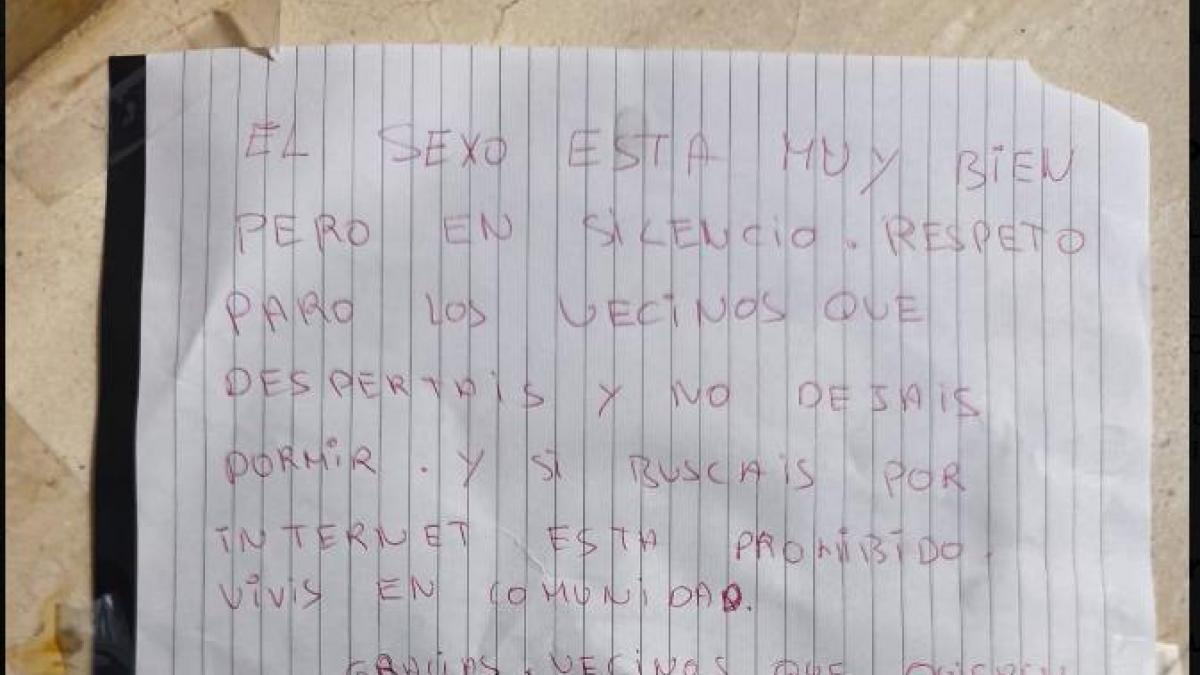 EL SEXO ESTA MUY BIEN
PERO EN SILENCIO. RESPETO
PARO LOS VECINOS QUE
DESPERTAIS Y NO DEJAIS
DORMIR. Y SI BUSCAIS POR
INTERNET ESTA PROHIBIDO.
VIVIS EN COMUNIDAD.
GRACIAS. VECINOS QUE